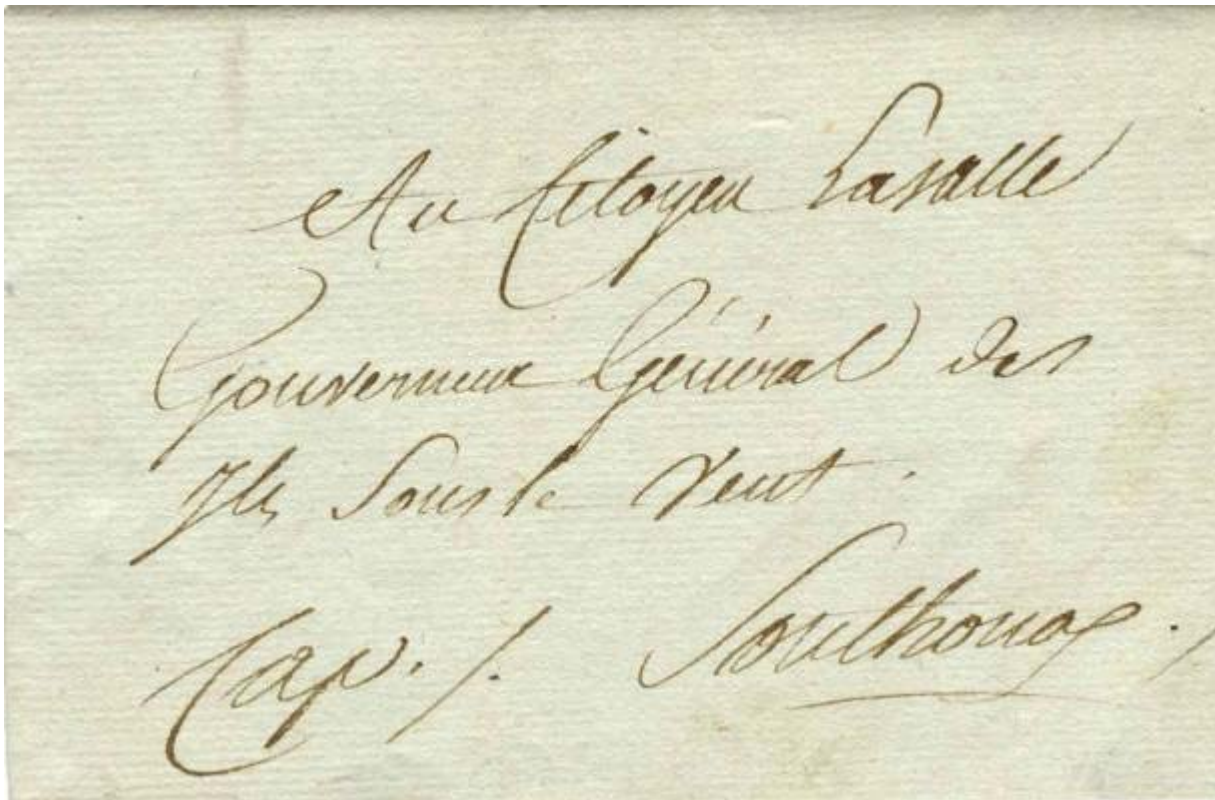 Au Citoyen Lasalle
Gouverneur Général des
Isles Sous le Vent.
Cap ./. Sonthonax ./